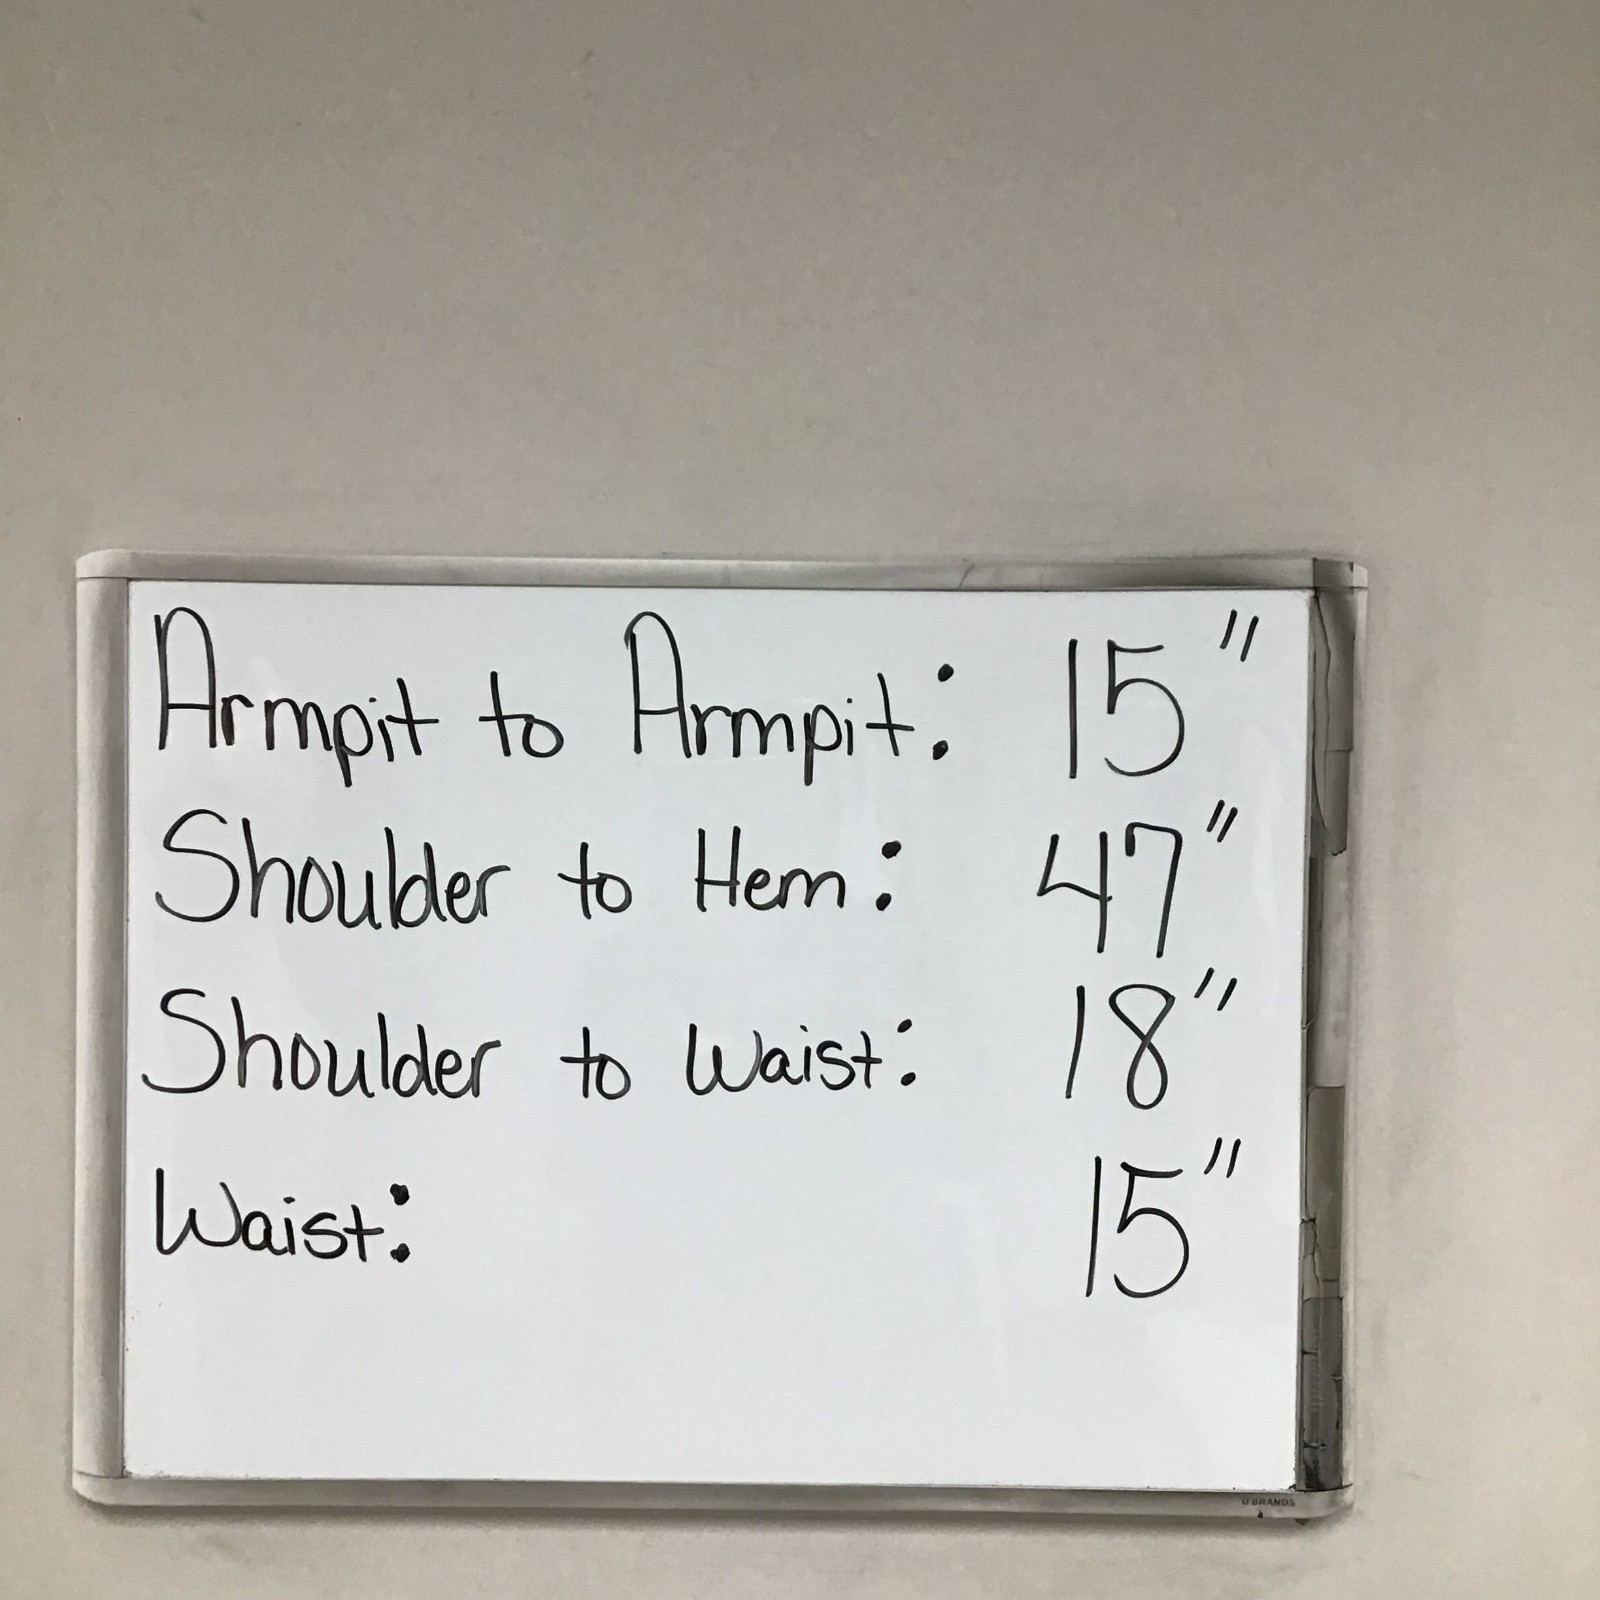 Armpit to Armpit: 15"
Shoulder to Hem: 47"
Shoulder to Waist: 18"
Waist: 15"
U BRANDS